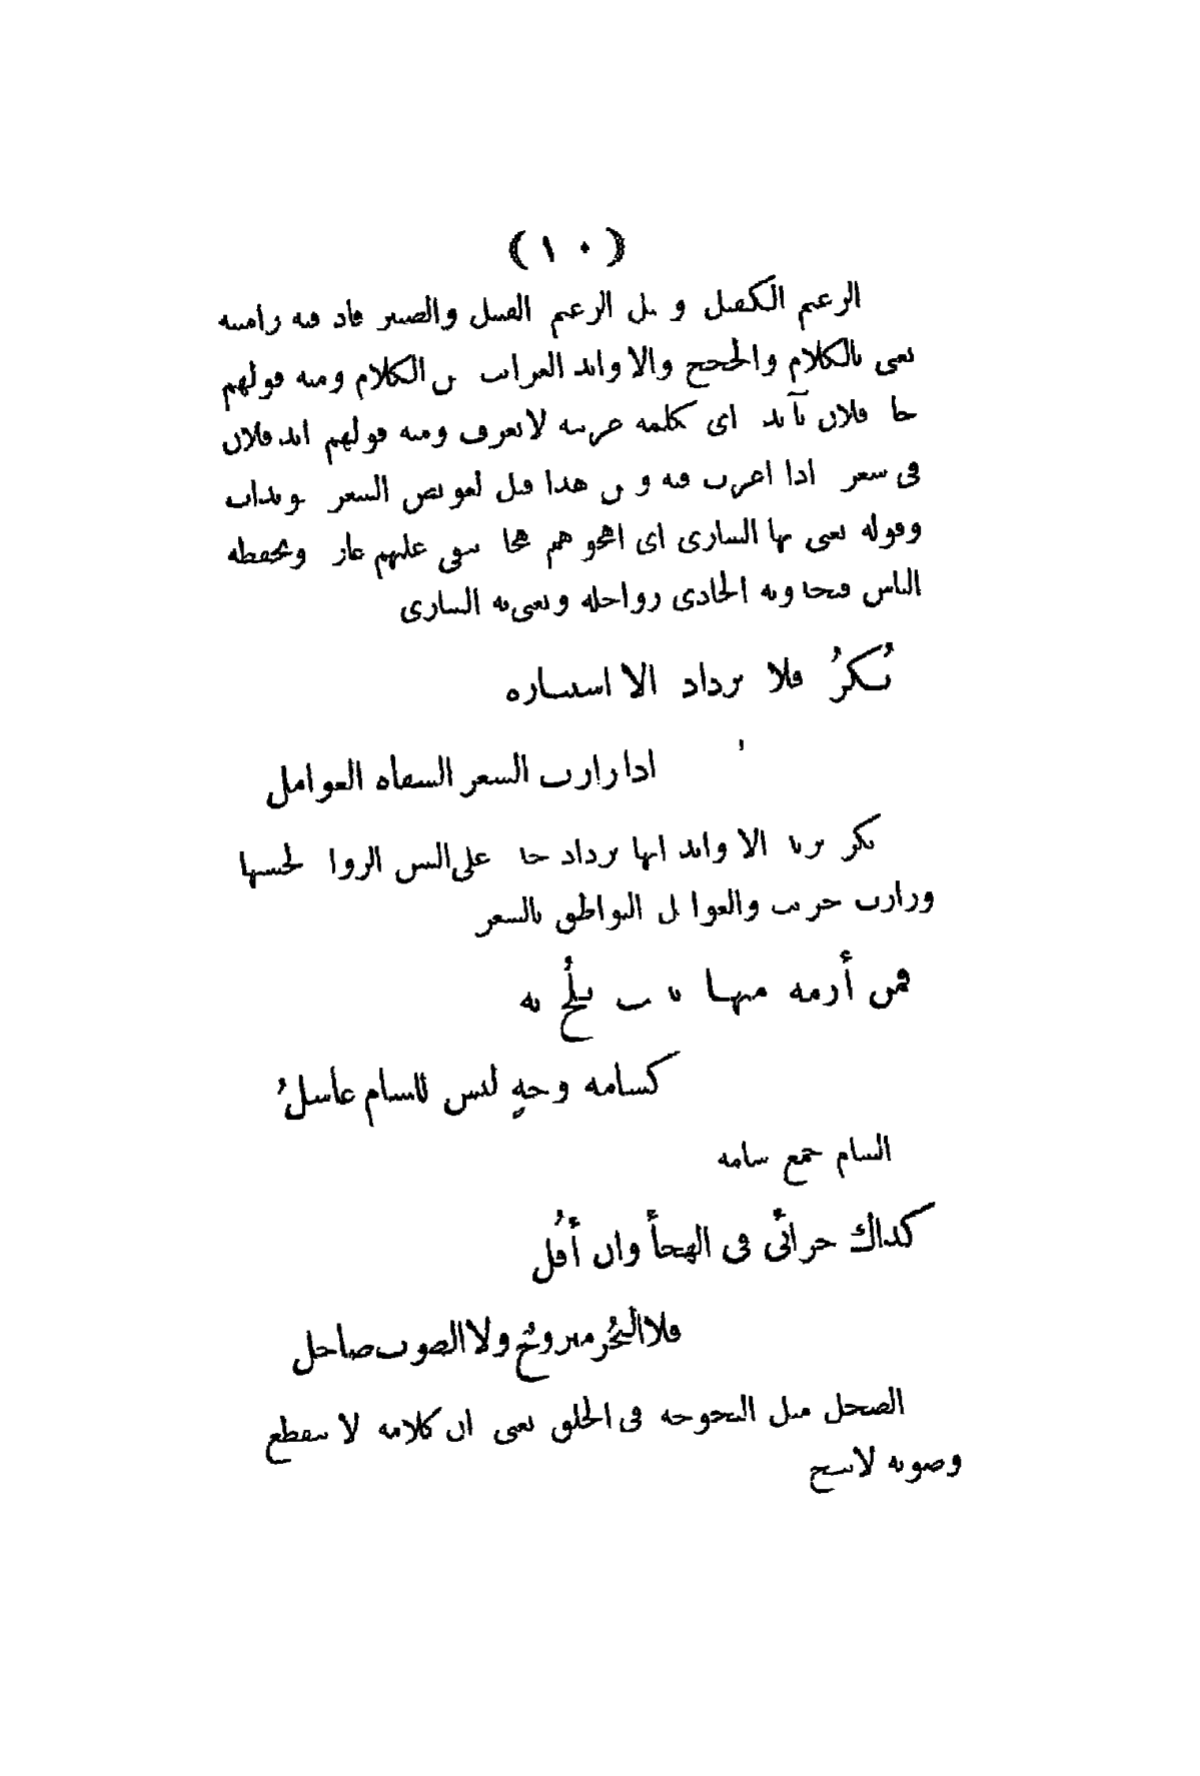 ( ١٠ )
الزعيم الكفيل و يل الزعيم القبيل والصبير قاذفته راميته
يعنى بالكلام والحجج والاوابد الغرائب من الكلام ومنه قولهم
جا فلان بآبدة اى بكلمة غريبة لا تعرف ومنه قولهم ابد فلان
فى شعره اذا اغرب فيه ومن هذا قيل لعويص الشعر
وقوله يغنى بها السارى اى اهجوهم هجا يبقى عليهم عاره ويحفظه
الناس فيحدو به الحادى رواحله ويغنى به السارى
تُكرُ فلا تزداد الا استنارة
اذا رازت الشعر الشفاه العوامل
تكر تردد الاوابد انها تزداد على السن الرواة لحسنها
ورازت جربت والعوامل النواطق بالشعر
فمن أرمه منها ببيت يلُح به
كشامة وجهٍ ليس للشام غاسلُ
الشام جمع شامة
كذاك جزائى فى الهجأ وان أقُل
فلا البحُر منزوحُ ولا الصوت صاحل
الصحل مثل البحوحة فى الحلق يعنى ان كلامه لا ينقطع
وصوته لا يبح